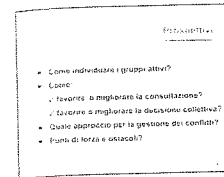 Prospettive
• Come individuare i gruppi attivi?
• Come:
✓ favorire o migliorare la consultazione?
✓ favorire o migliorare la decisione collettiva?
• Quale approccio per la gestione dei conflitti?
• Punti di forza e ostacoli?